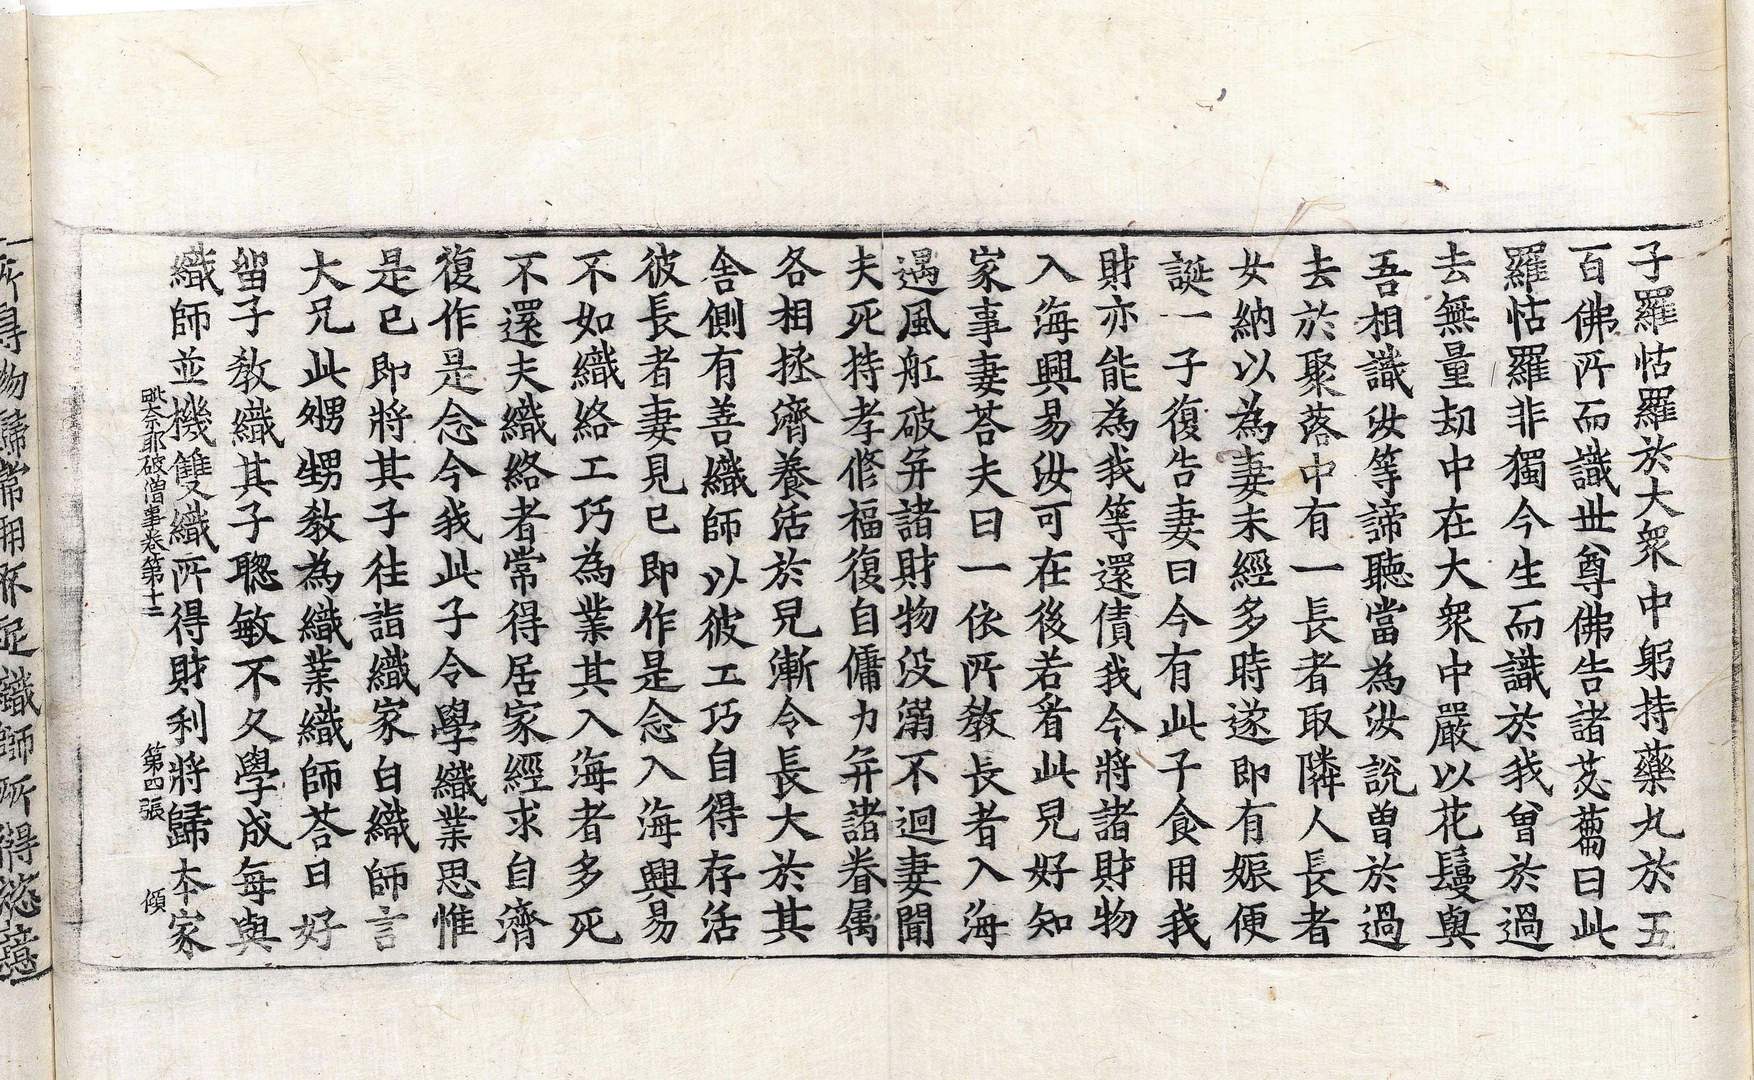 子羅怙羅於大衆中躬持藥丸於五
百佛所而識世尊佛告諸苾蒭曰此
羅怙羅非獨今生而識於我曾於過
去無量劫中在大衆中嚴以花鬘與
吾相識汝等諦聽當為汝說曾於過
去於聚落中有一長者取隣人長者
女納以為妻未經多時遂即有娠便
誕一子復告妻曰今有此子食用我
財亦能為我等還債我今將諸財物
入海興易汝可在後若看此兒好知
家事妻荅夫曰一依所教長者入海
遇風舡破并諸財物没溺不迴妻聞
夫死持孝修福復自傭力并諸眷属
各相拯濟養活於兒漸令長大於其
舍側有善織師以彼工巧自得存活
彼長者妻見已即作是念入海興易
不如織絡工巧為業其入海者多死
不還夫織絡者常得居家經求自濟
復作是念今我此子令學織業思惟
是已即將其子往詣織家白織師言
大兄此甥甥教為織業織師荅曰好
留子教織其子聦敏不久學成每與
織師並機雙織所得財利將歸本家
毗奈耶破僧事卷第十二 第四張 傾
所得物歸常用不足織師所得恣意